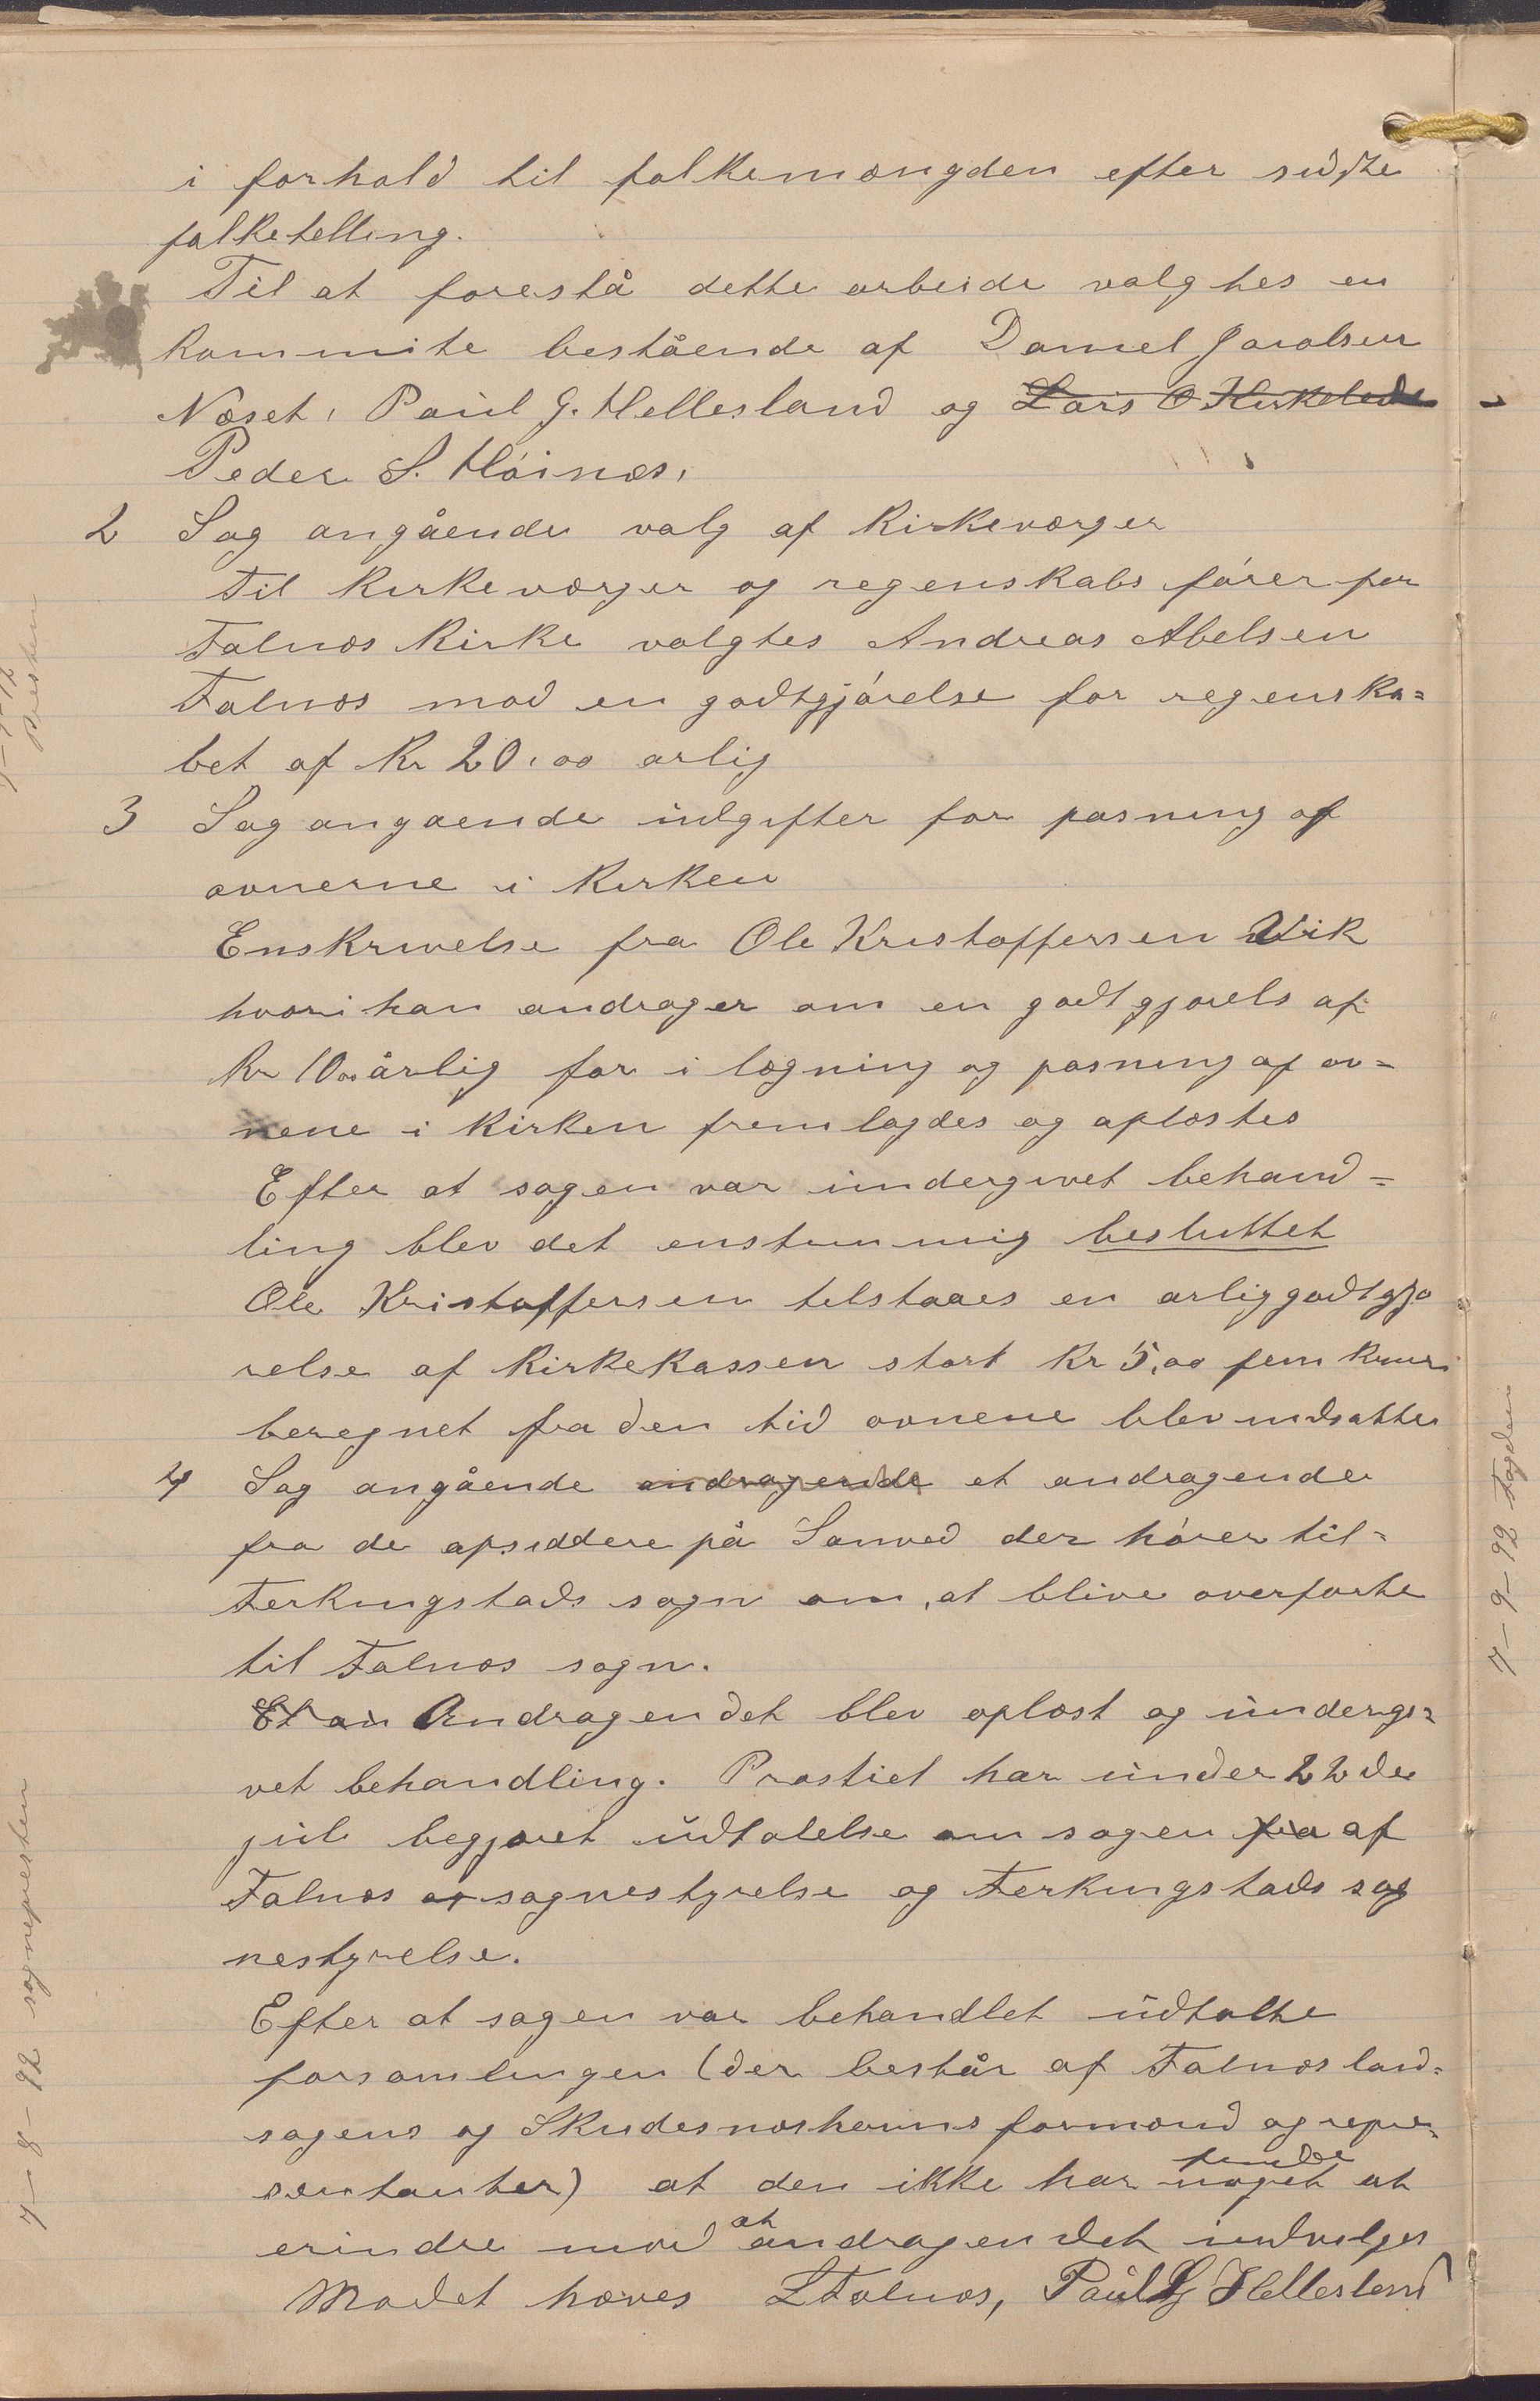 i forhold til folkemængden efter sidste
folketelling.
Til at forestå dette arbeide valgtes en
kommite bestående af Daniel Jacobsen
Næset, Paul G. Hellesland og Lars O Kirkeleite
Peder S. Høinæs.
2 Sag angående valg af kirkeværger
Til kirkeværger og regenskabs fører for
Falnæs kirke valgtes Andreas Abelsen
Falnæs mod en godtgjørelse for regenska=
bet af Kr 20,00 arlig
3 Sag angaende udgifter for pasning af
ovnerne i kirken
En skrivelse fra Ole Kristoffersen Vik
hvori han andrager om en godtgjørels af
Kr 10,00 årlig for i lægning og pasning af ov=
nene i kirken fremlagdes og oplæstes
Efter at sagen var undergivet behand=
ling blev det enstemmig besluttet
Ole Kristoffersen tilstaaes en arlig godtgjø
relse af kirkekassen stort Kr 5,00 fem kroner
beregnet fra den tid ovnene blev indsatte
4 Sag angående andragende et andragende
fra de opsiddere på Sanved der hører til=
Ferkingstads sogn om, at blive overførte
til Falnæs sogn.
Et an Andragendet blev oplæst og undergi=
vet behandling. Prostiet har under 22de
juli begjæret udtalelse om sagen fra af
Falnæs sognestyrelse og Ferkingstads sog
nestyrelse.
Efter at sagen var behandlet udtalte
forsamlingen (der består af Falnæs land=
sogens og Skudesneshavns formænd og repre=
sentanter) at den ikke har noget at
erindre mod at andragendet indvilges
Mødet hæves L Falnæs, Paul G Hellesland
7-8-92 sognepresten
7-9-92 Fogden